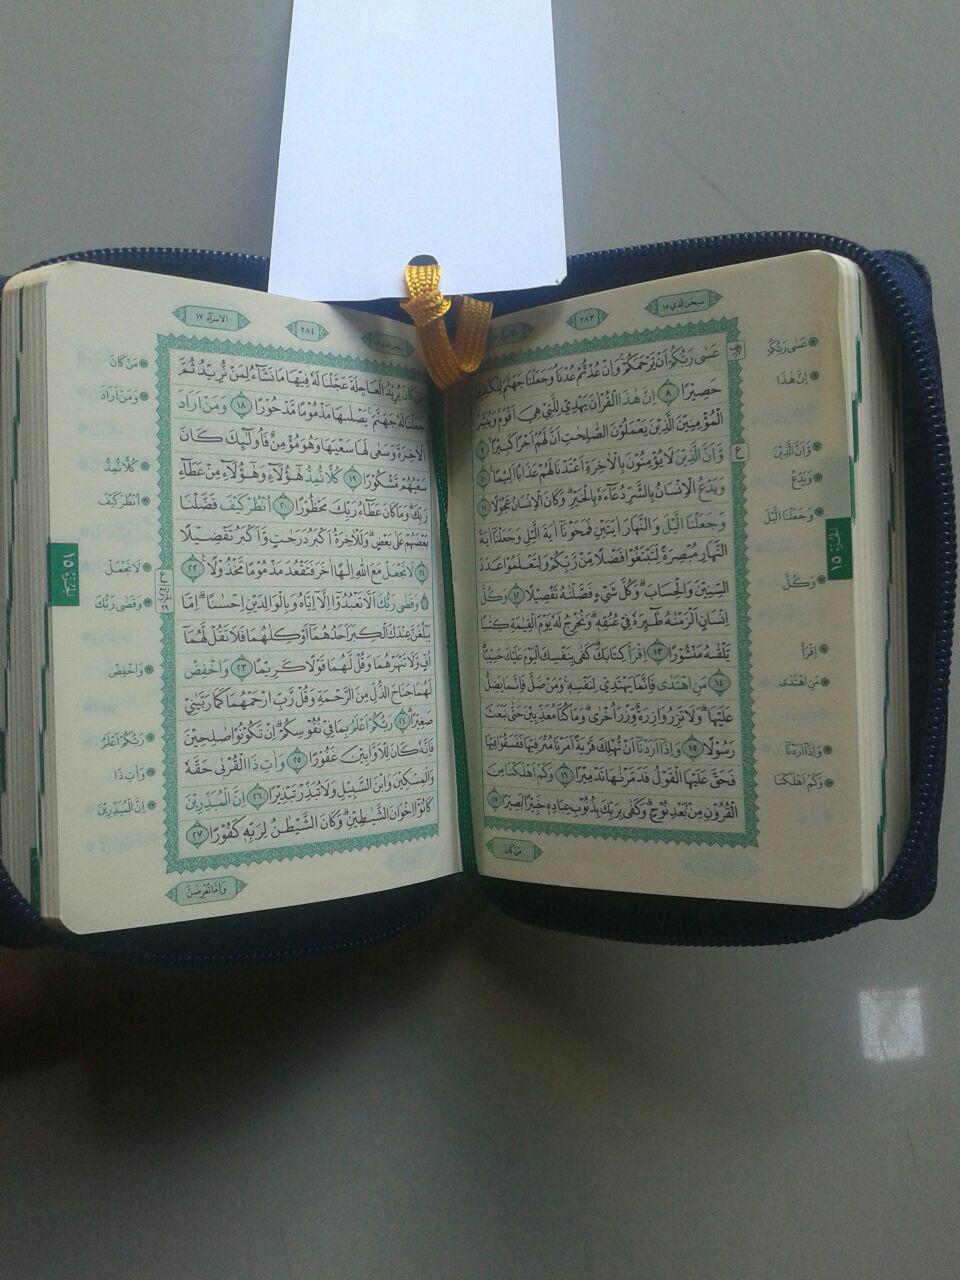 سبحن الذي ١٥
٢٨٣
عَسٰى رَبُّكُمْ اَنْ يَّرْحَمَكُمْ وَاِنْ عُدْتُّمْ عُدْنَا وَجَعَلْنَا جَهَنَّمَ لِلْكٰفِرِيْنَ
حَصِيْرًا ٨ اِنَّ هٰذَا الْقُرْاٰنَ يَهْدِيْ لِلَّتِيْ هِيَ اَقْوَمُ وَيُبَشِّرُ
الْمُؤْمِنِيْنَ الَّذِيْنَ يَعْمَلُوْنَ الصّٰلِحٰتِ اَنَّ لَهُمْ اَجْرًا كَبِيْرًا ٩
وَّاَنَّ الَّذِيْنَ لَا يُؤْمِنُوْنَ بِالْاٰخِرَةِ اَعْتَدْنَا لَهُمْ عَذَابًا اَلِيْمًا ١٠
وَيَدْعُ الْاِنْسَانُ بِالشَّرِّ دُعَاۤءَهٗ بِالْخَيْرِ وَكَانَ الْاِنْسَانُ عَجُوْلًا ١١
وَجَعَلْنَا الَّيْلَ وَالنَّهَارَ اٰيَتَيْنِ فَمَحَوْنَآ اٰيَةَ الَّيْلِ وَجَعَلْنَآ اٰيَةَ
النَّهَارِ مُبْصِرَةً لِّتَبْتَغُوْا فَضْلًا مِّنْ رَّبِّكُمْ وَلِتَعْلَمُوْا عَدَدَ
السِّنِيْنَ وَالْحِسَابَ وَكُلَّ شَيْءٍ فَصَّلْنٰهُ تَفْصِيْلًا ١٢ وَكُلَّ
اِنْسَانٍ اَلْزَمْنٰهُ طٰۤىِٕرَهٗ فِيْ عُنُقِهٖ وَنُخْرِجُ لَهٗ يَوْمَ الْقِيٰمَةِ كِتٰبًا
يَّلْقٰىهُ مَنْشُوْرًا ١٣ اِقْرَأْ كِتَابَكَ كَفٰى بِنَفْسِكَ الْيَوْمَ عَلَيْكَ حَسِيْبًا
١٤ مَنِ اهْتَدٰى فَاِنَّمَا يَهْتَدِيْ لِنَفْسِهٖ وَمَنْ ضَلَّ فَاِنَّمَا يَضِلُّ
عَلَيْهَا وَلَا تَزِرُ وَازِرَةٌ وِّزْرَ اُخْرٰى وَمَا كُنَّا مُعَذِّبِيْنَ حَتّٰى نَبْعَثَ
رَسُوْلًا ١٥ وَاِذَآ اَرَدْنَآ اَنْ نُّهْلِكَ قَرْيَةً اَمَرْنَا مُتْرَفِيْهَا فَفَسَقُوْا فِيْهَا
فَحَقَّ عَلَيْهَا الْقَوْلُ فَدَمَّرْنٰهَا تَدْمِيْرًا ١٦ وَكَمْ اَهْلَكْنَا مِنَ
الْقُرُوْنِ مِنْۢ بَعْدِ نُوْحٍ وَكَفٰى بِرَبِّكَ بِذُنُوْبِ عِبَادِهٖ خَبِيْرًا بَصِيْرًا ١٧
مَنْ كَانَ
عَسٰى رَبُّكُمْ
اِنَّ هٰذَا
وَّاَنَّ الَّذِيْنَ
وَيَدْعُ
وَجَعَلْنَا الَّيْلَ
وَكُلَّ
اِقْرَأْ
مَنِ اهْتَدٰى
وَاِذَآ اَرَدْنَآ
وَكَمْ اَهْلَكْنَا
الجزء ١٥
٢٨٤
الاسرآء ١٧
مَنْ كَانَ يُرِيْدُ الْعَاجِلَةَ عَجَّلْنَا لَهٗ فِيْهَا مَا نَشَاۤءُ لِمَنْ نُّرِيْدُ ثُمَّ
جَعَلْنَا لَهٗ جَهَنَّمَ يَصْلٰىهَا مَذْمُوْمًا مَّدْحُوْرًا ١٨ وَمَنْ اَرَادَ
الْاٰخِرَةَ وَسَعٰى لَهَا سَعْيَهَا وَهُوَ مُؤْمِنٌ فَاُولٰۤىِٕكَ كَانَ
سَعْيُهُمْ مَّشْكُوْرًا ١٩ كُلًّا نُّمِدُّ هٰٓؤُلَاۤءِ وَهٰٓؤُلَاۤءِ مِنْ عَطَاۤءِ
رَبِّكَ وَمَا كَانَ عَطَاۤءُ رَبِّكَ مَحْظُوْرًا ٢٠ اُنْظُرْ كَيْفَ فَضَّلْنَا
بَعْضَهُمْ عَلٰى بَعْضٍ وَلَلْاٰخِرَةُ اَكْبَرُ دَرَجٰتٍ وَّاَكْبَرُ تَفْضِيْلًا
٢١ لَا تَجْعَلْ مَعَ اللّٰهِ اِلٰهًا اٰخَرَ فَتَقْعُدَ مَذْمُوْمًا مَّخْذُوْلًا ٢٢
وَقَضٰى رَبُّكَ اَلَّا تَعْبُدُوْٓا اِلَّآ اِيَّاهُ وَبِالْوَالِدَيْنِ اِحْسٰنًا اِمَّا
يَبْلُغَنَّ عِنْدَكَ الْكِبَرَ اَحَدُهُمَآ اَوْ كِلٰهُمَا فَلَا تَقُلْ لَّهُمَآ
اُفٍّ وَّلَا تَنْهَرْهُمَا وَقُلْ لَّهُمَا قَوْلًا كَرِيْمًا ٢٣ وَاخْفِضْ
لَهُمَا جَنَاحَ الذُّلِّ مِنَ الرَّحْمَةِ وَقُلْ رَّبِّ ارْحَمْهُمَا كَمَا رَبَّيٰنِيْ
صَغِيْرًا ٢٤ رَبُّكُمْ اَعْلَمُ بِمَا فِيْ نُفُوْسِكُمْ اِنْ تَكُوْنُوْا صٰلِحِيْنَ
فَاِنَّهٗ كَانَ لِلْاَوَّابِيْنَ غَفُوْرًا ٢٥ وَاٰتِ ذَا الْقُرْبٰى حَقَّهٗ
وَالْمِسْكِيْنَ وَابْنَ السَّبِيْلِ وَلَا تُبَذِّرْ تَبْذِيْرًا ٢٦ اِنَّ الْمُبَذِّرِيْنَ
كَانُوْٓا اِخْوَانَ الشَّيٰطِيْنِ وَكَانَ الشَّيْطٰنُ لِرَبِّهٖ كَفُوْرًا ٢٧
وَاِمَّا تُعْرِضَنَّ
مَنْ كَانَ
وَمَنْ اَرَادَ
كُلًّا نُّمِدُّ
اُنْظُرْ كَيْفَ
لَا تَجْعَلْ
وَقَضٰى رَبُّكَ
وَاخْفِضْ
رَبُّكُمْ اَعْلَمُ
وَاٰتِ ذَا
اِنَّ الْمُبَذِّرِيْنَ
الجزء ١٥